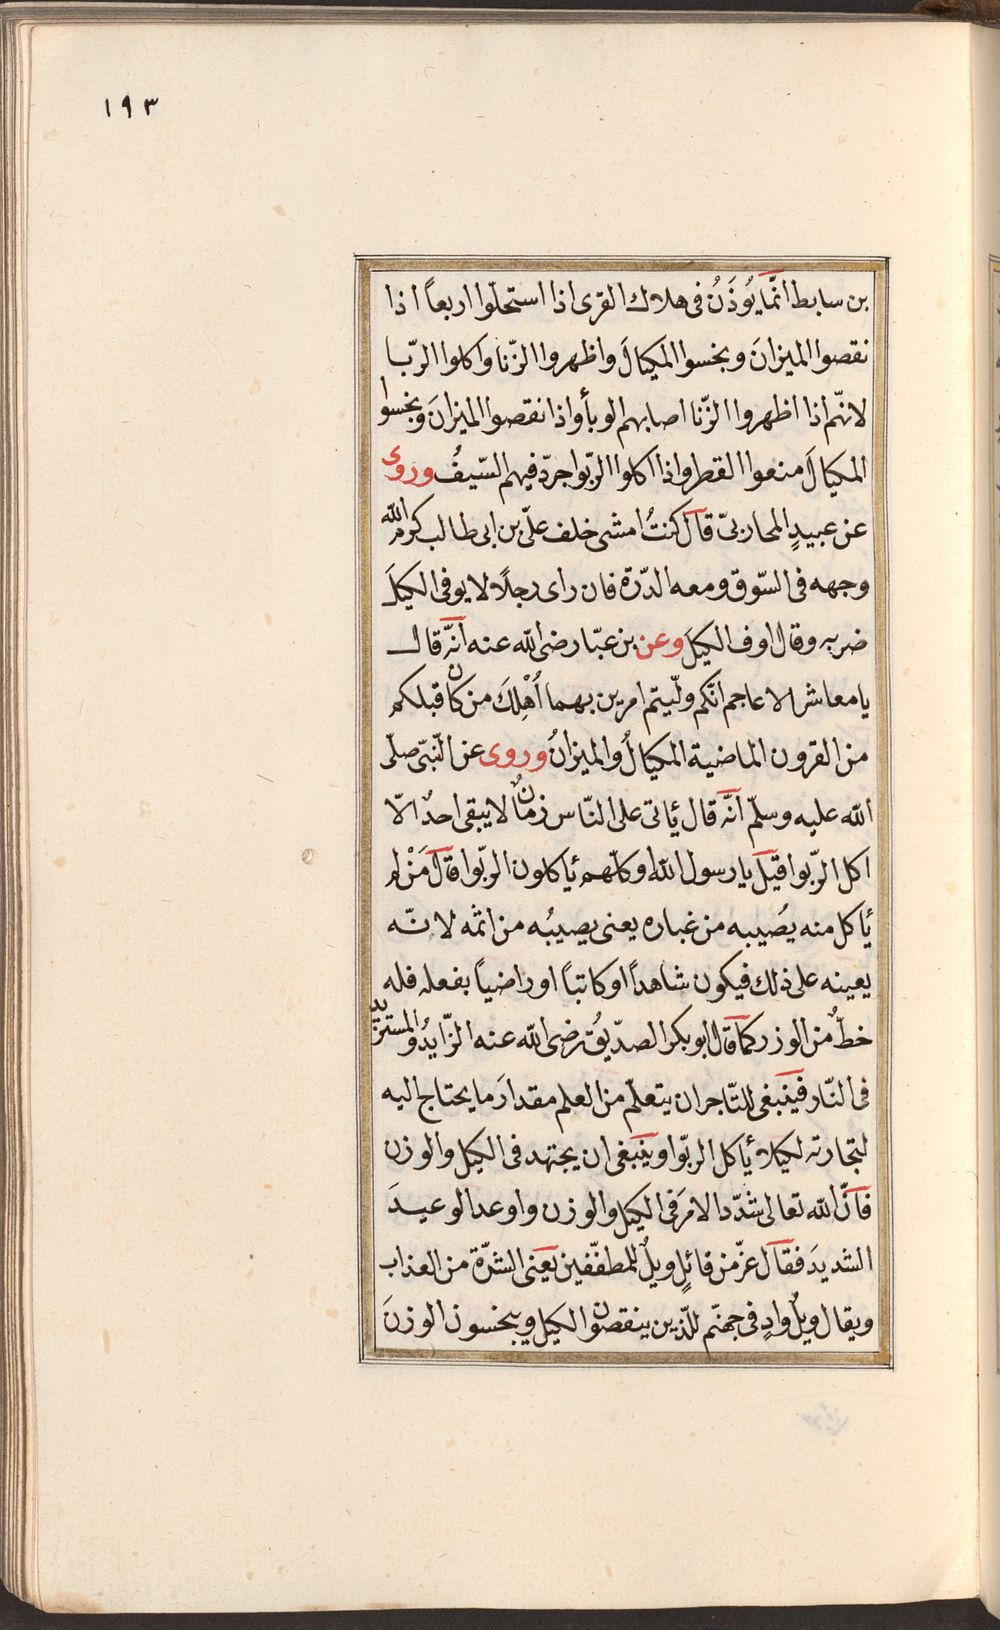 ١٩٣
بن سابط انّما يُوذَنُ فى هلاك القرى اذا استحلّوا اربعاً اذا
نقصوا الميزانَ وبخسوا المكيالَ واظهروا الزّنا واكلوا الرّبا
لانّهم اذا اظهروا الزّنا اصابهم الوبأ واذا نقصوا الميزانَ وبخسوا
المكيالَ منعوا القطر واذا اكلوا الرّبوا جرّد فيهم السّيفُ وروى
عن عبيدٍ المحاربىّ قال كنتُ امشى خلف علىّ بن ابى طالب كرم الله
وجهه فى السّوق ومعه الدّرّة فان راى رجلًا لا يوفى الكيلَ
ضربه وقال اوف الكيلَ وعن بن عبّاس رضى الله عنه انّه قال
يا معاشر الاعاجم انّكم ولّيتم امرين بهما اُهْلِكَ من كان قبلكم
من القرون الماضية المكيالُ والميزانُ وروى عن النّبىّ صلّى
الله عليه وسلّم انّه قال ئاتى على النّاس زمانٌ لا يبقى احدٌ الّا
اكل الرّبوا قيل يا رسول الله وكلّهم ئاكلون الرّبوا قال مَنْ لم
ئاكل منه يصُيبه من غباره يعنى يصيبُه من اثمه لانّه
يعينه على ذلك فيكون شاهداً او كاتباً او راضياً بفعله فله
خطّ من الوزر كما قال ابو بكر الصدّيق رضى الله عنه الزّايدُ والمستزيد
فى النّار فينبغى للتّاجر ان يتعلّم من العلم مقدارَ ما يحتاج اليه
لتجارته لكيلا ئاكل الرّبوا وينبغى ان يجتهد فى الكيل والوزن
فانّ الله تعالى شدّد الامرَ فى الكيل والوزن واوعد الوعيدَ
الشديدَ فقال عزّ من قائلٍ ويلٌ للمطفّفين يعنى الشدّة من العذاب
ويقال ويلٌ وادٍ فى جهنّم للّذين ينقصون الكيل ويبخسون الوزنَ